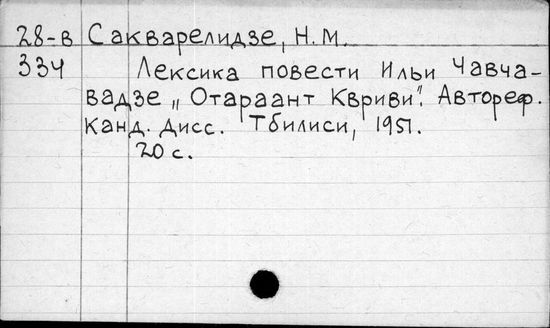 28-в Сакварелидзе, Н.М.
334 Лексика повести Ильи Чавча-
вадзе „Отараант Квриви". Автореф.
канд. дисс. Тбилиси, 1951.
20 с.